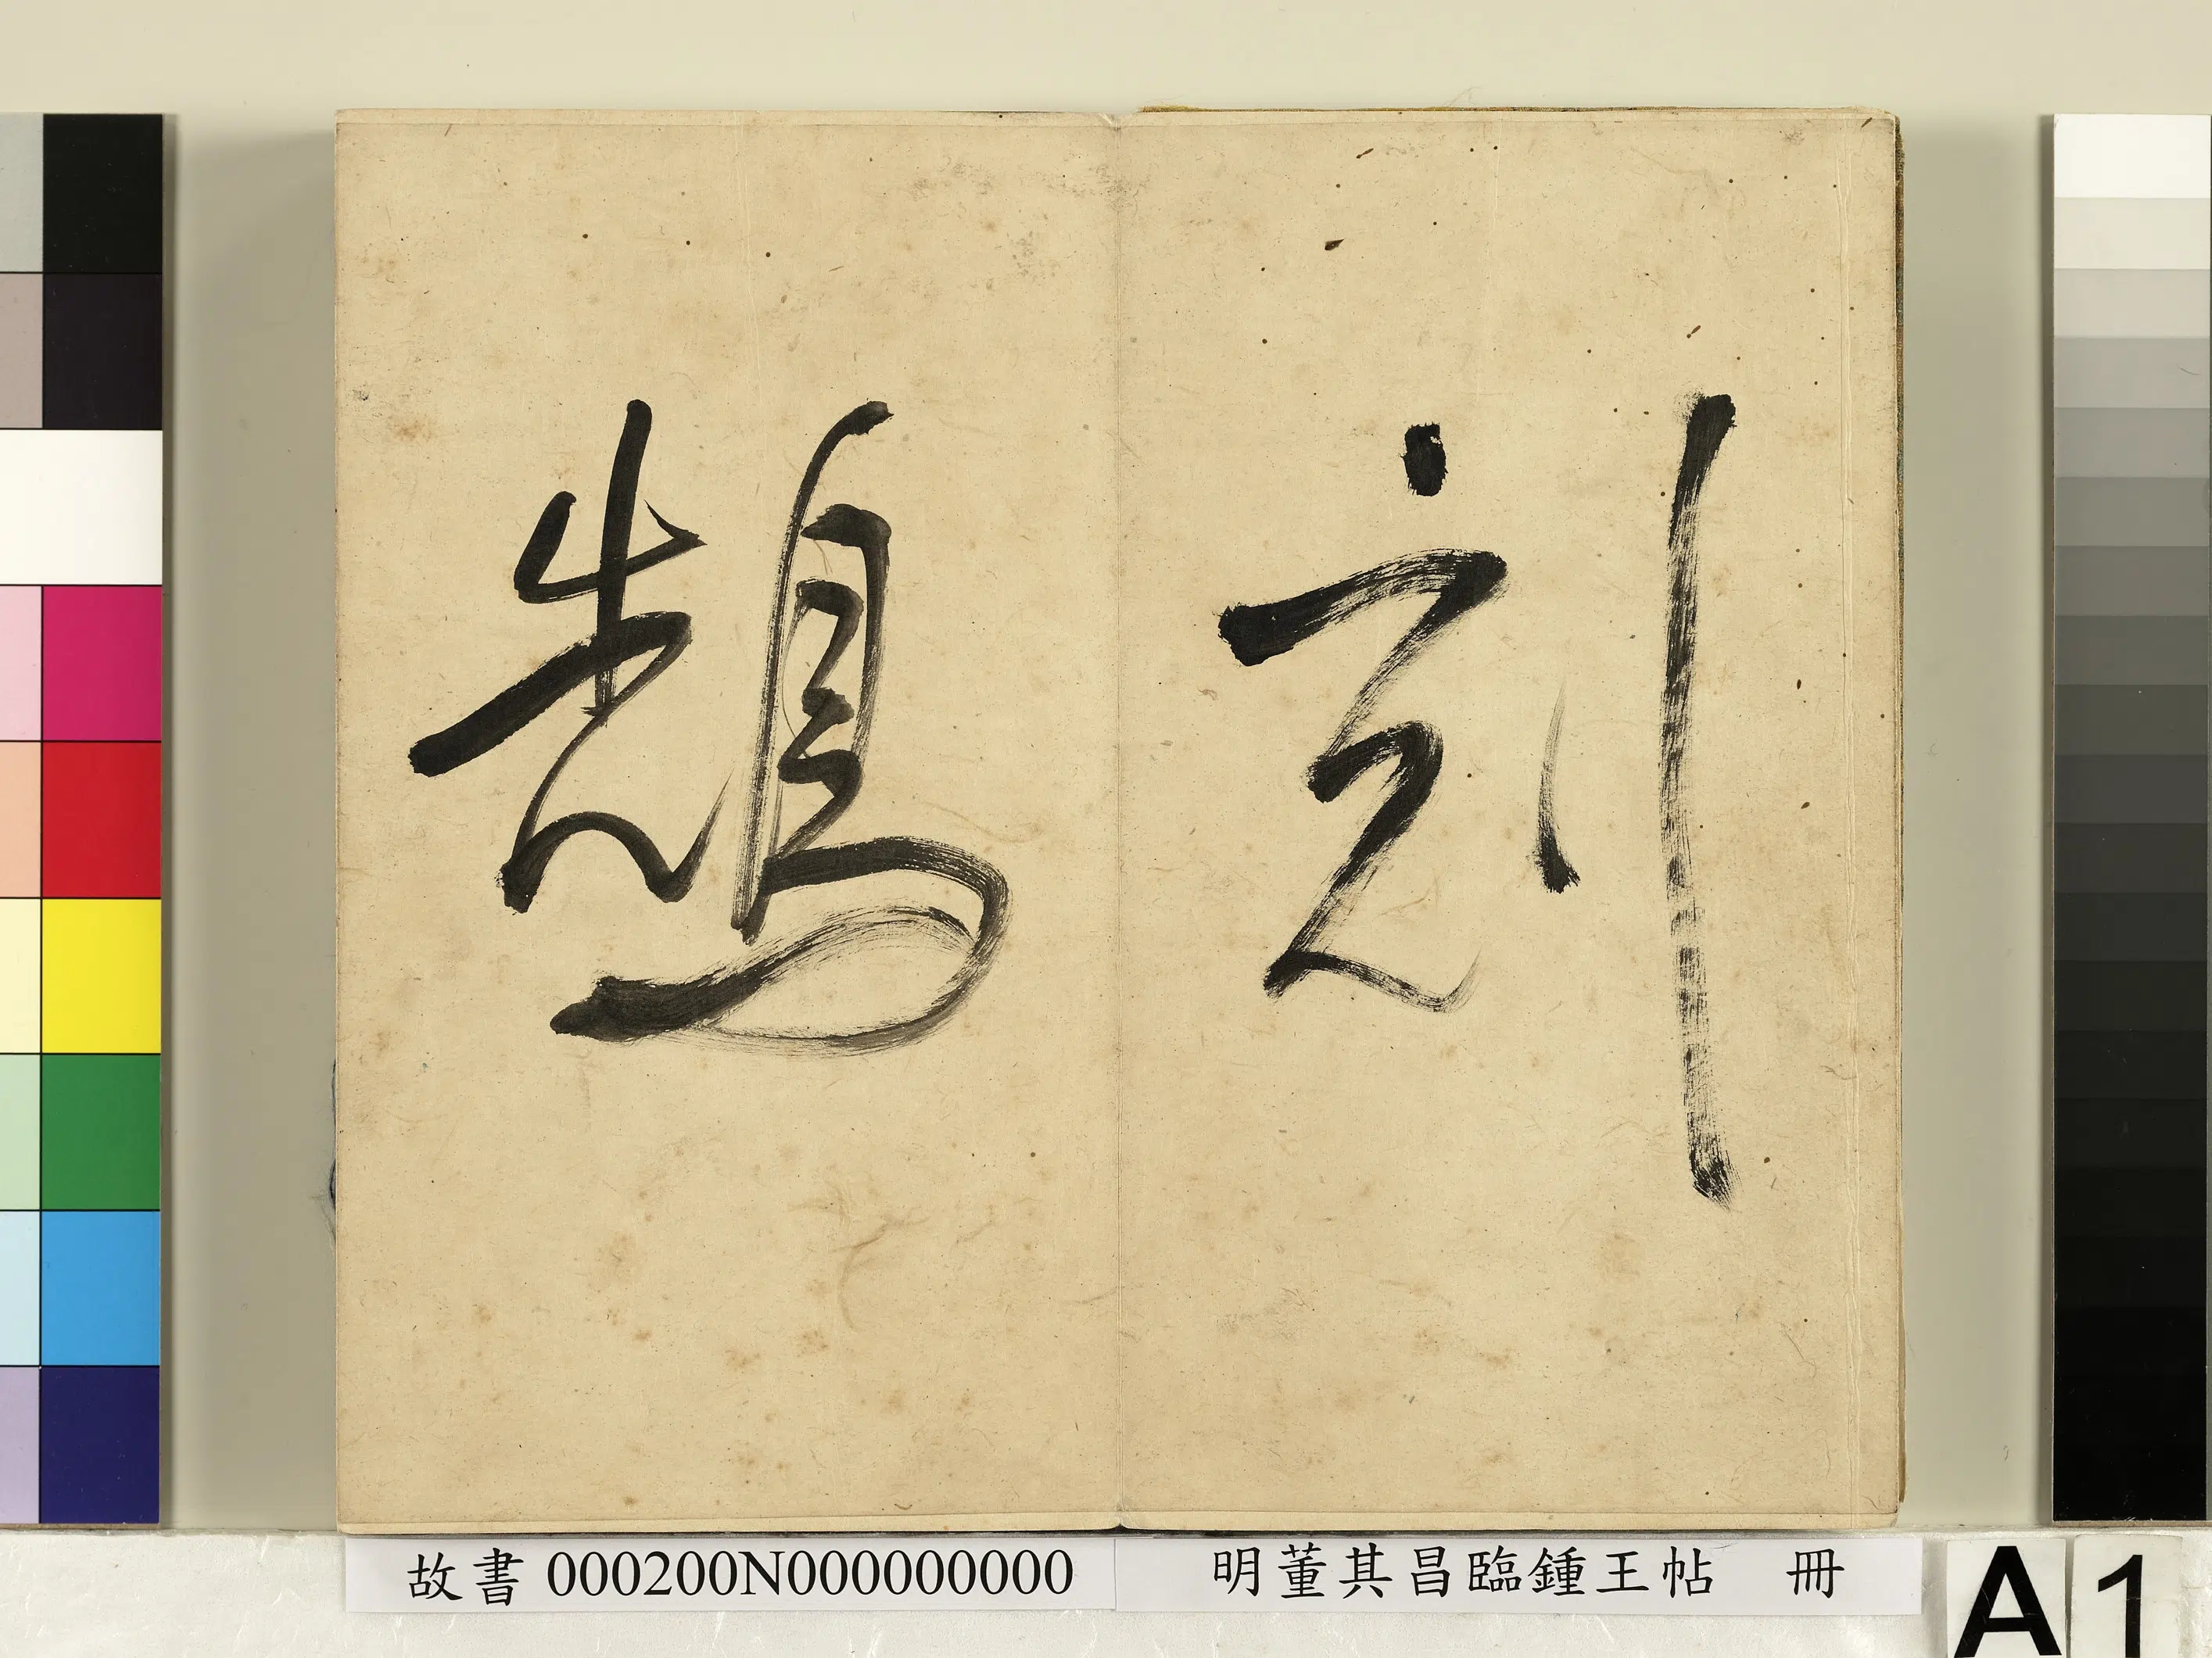 刻
鵠
故書 000200N000000000
明董其昌臨鍾王帖 冊
A 1